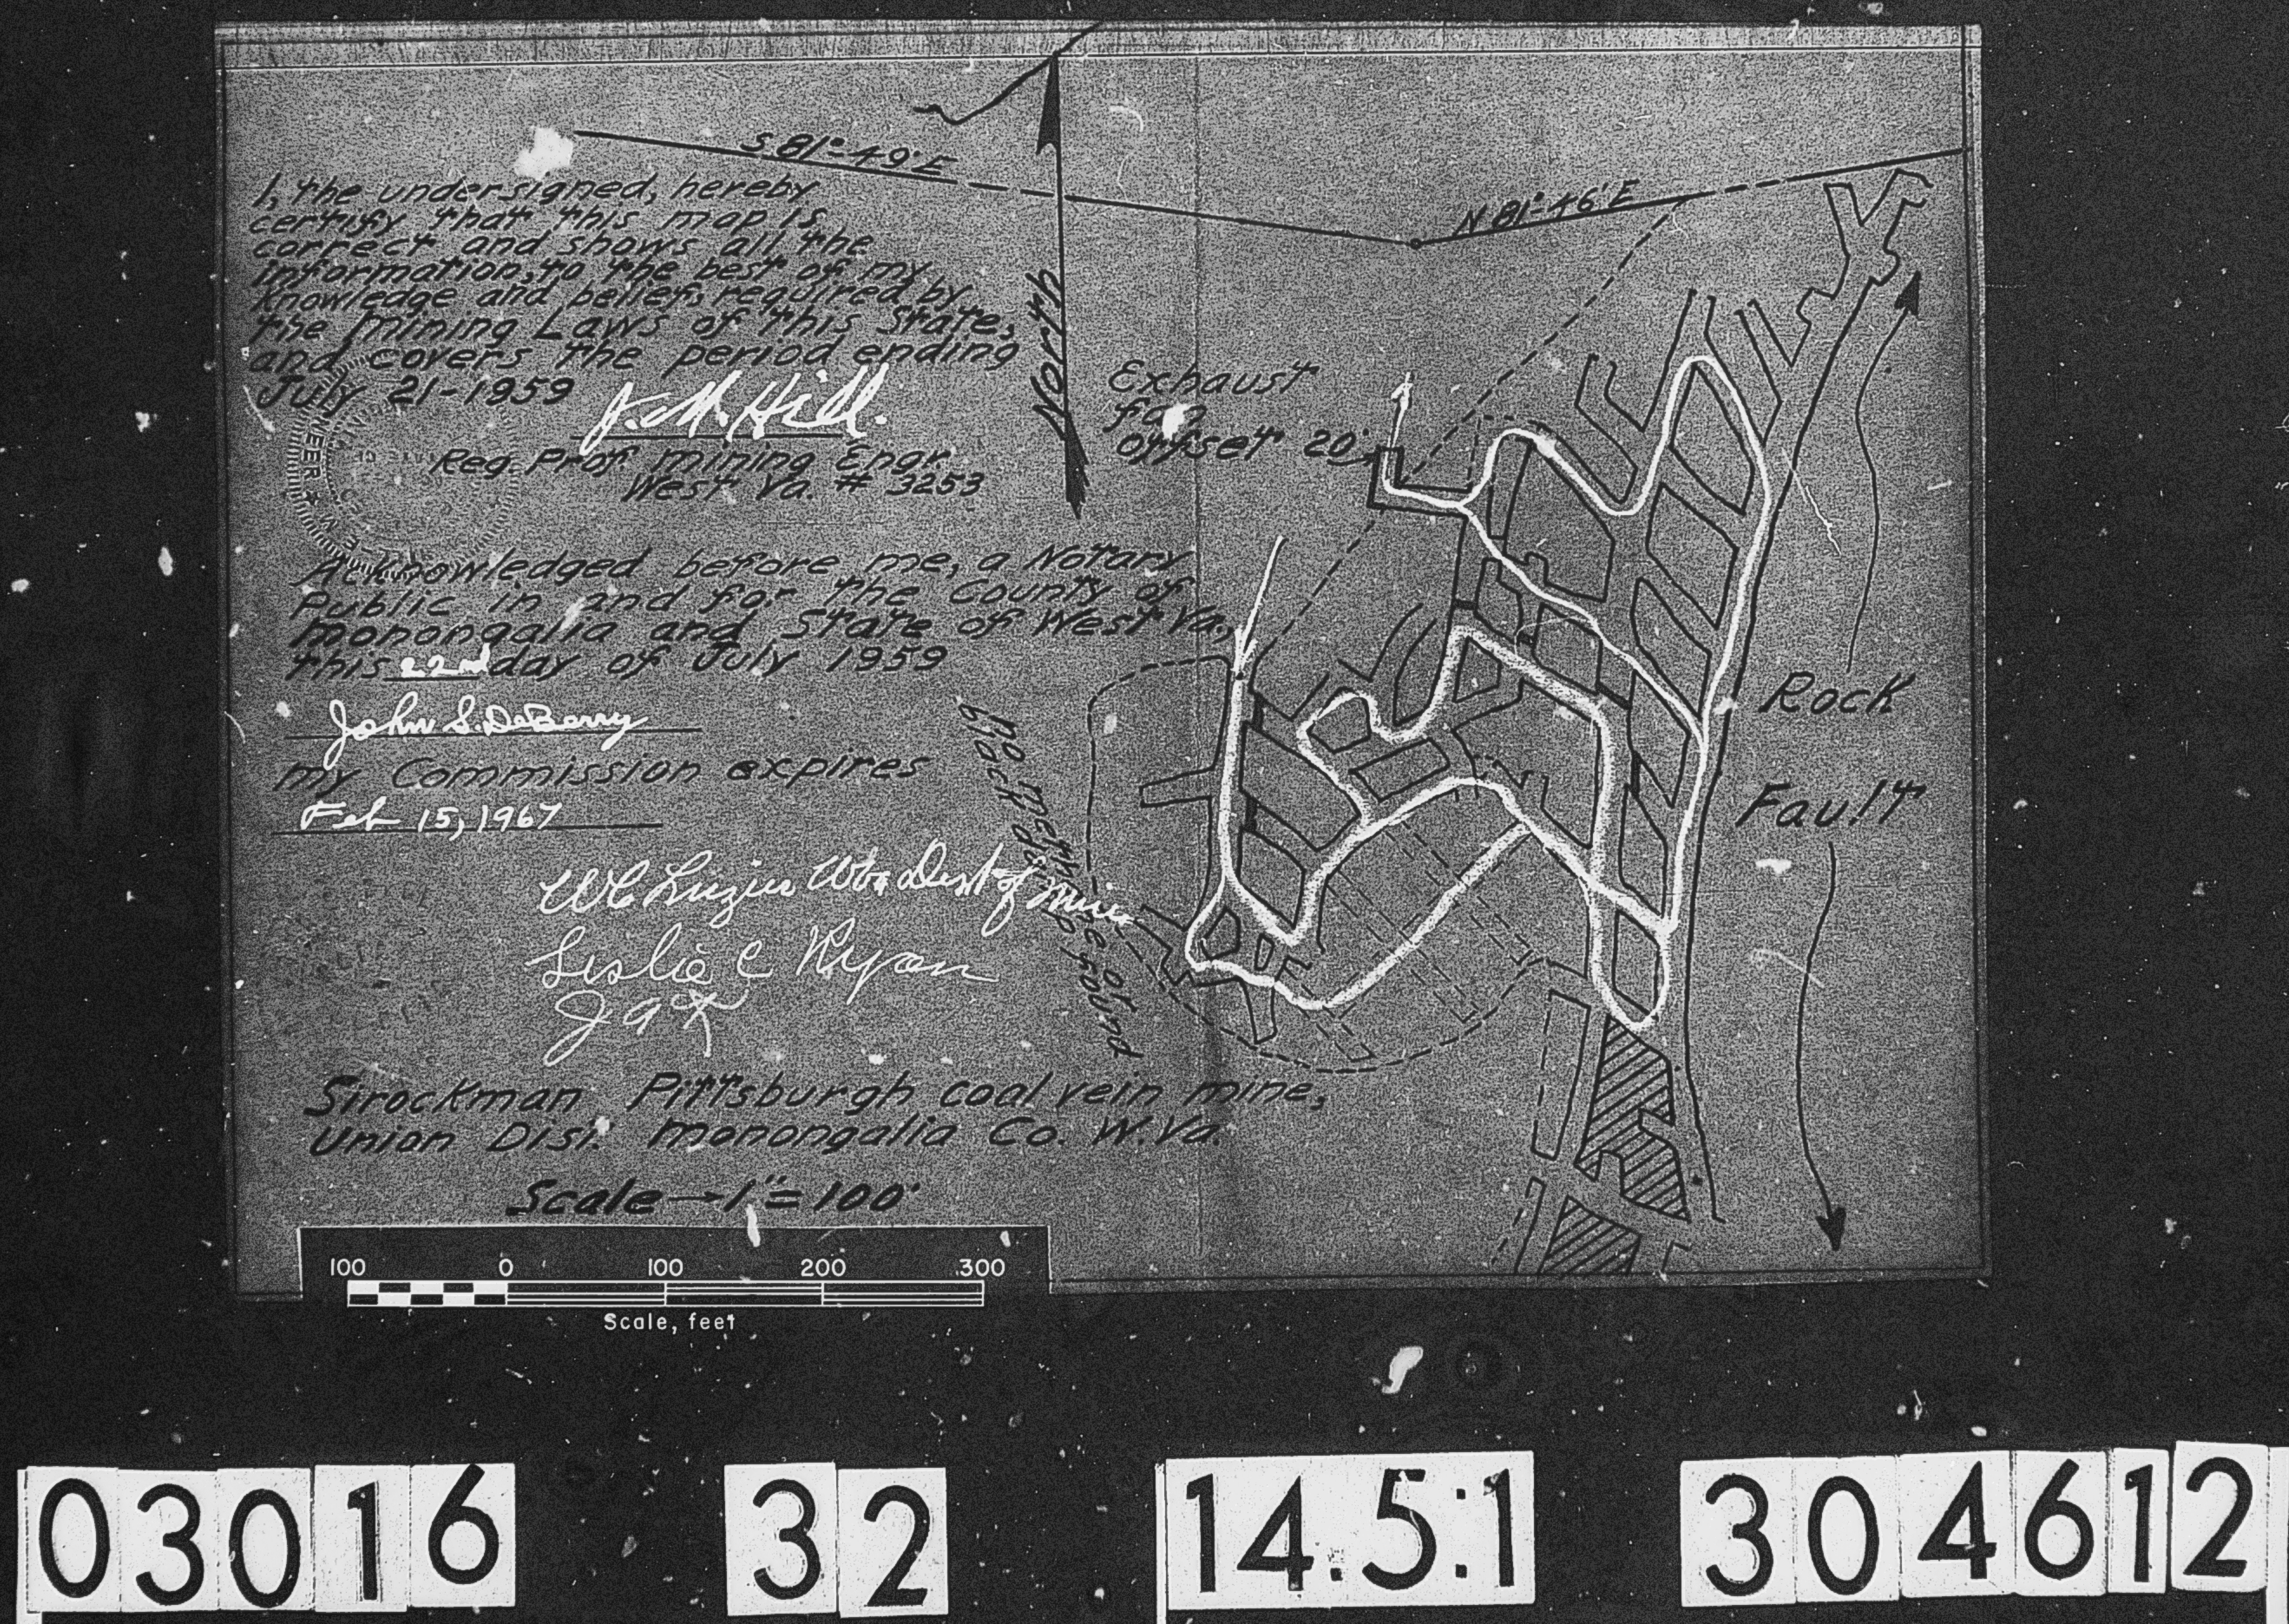 S 81°-49' E
N 81°-46' E
North
I, the undersigned, hereby
certify that this map is
correct and shows all the
information, to the best of my
knowledge and belief, required by
the Mining Laws of this State,
and covers the period ending
July 21-1959
J. M. Hill.
Reg. Prof. Mining Engr.
West Va. # 3253
NEER
Exhaust
fan
offset 20'
Acknowledged before me, a Notary
Public in and for the County of
Monongalia and State of West Va.,
this 22nd day of July 1959
John S. DeBerry
My Commission expires
Feb 15, 1967
Rock
Fault
no
black
or
found
Dept of Mines
Leslie C Ryan
Sirockman Pittsburgh coal vein mine,
Union Dist. Monongalia Co. W.Va.
Scale→1"=100'
100 0 100 200 300
Scale, feet
03016 32 14.5:1 304612